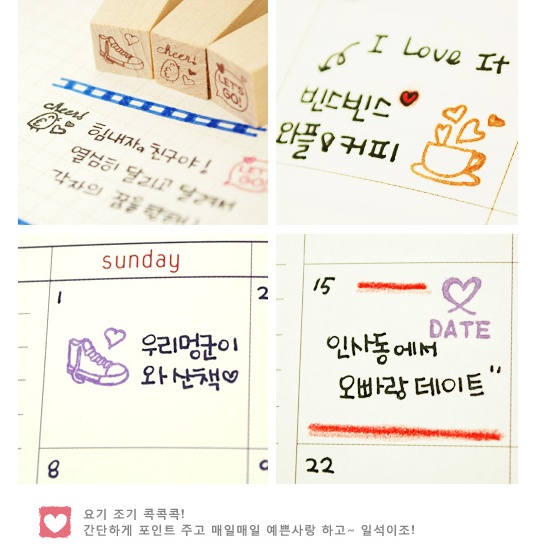 cheers
LET'S GO!
cheers
힘내자, 친구야!
LET'S GO!
열심히 달리고 달려서
각자의 꿈을
I Love It
빈스빈스
와플&커피
sunday
1
2
우리멍군이
와 산책
8
15
DATE
인사동에서
오빠랑 데이트"
22
요기 조기 콕콕콕!
간단하게 포인트 주고 매일매일 예쁜사랑 하고~ 일석이조!